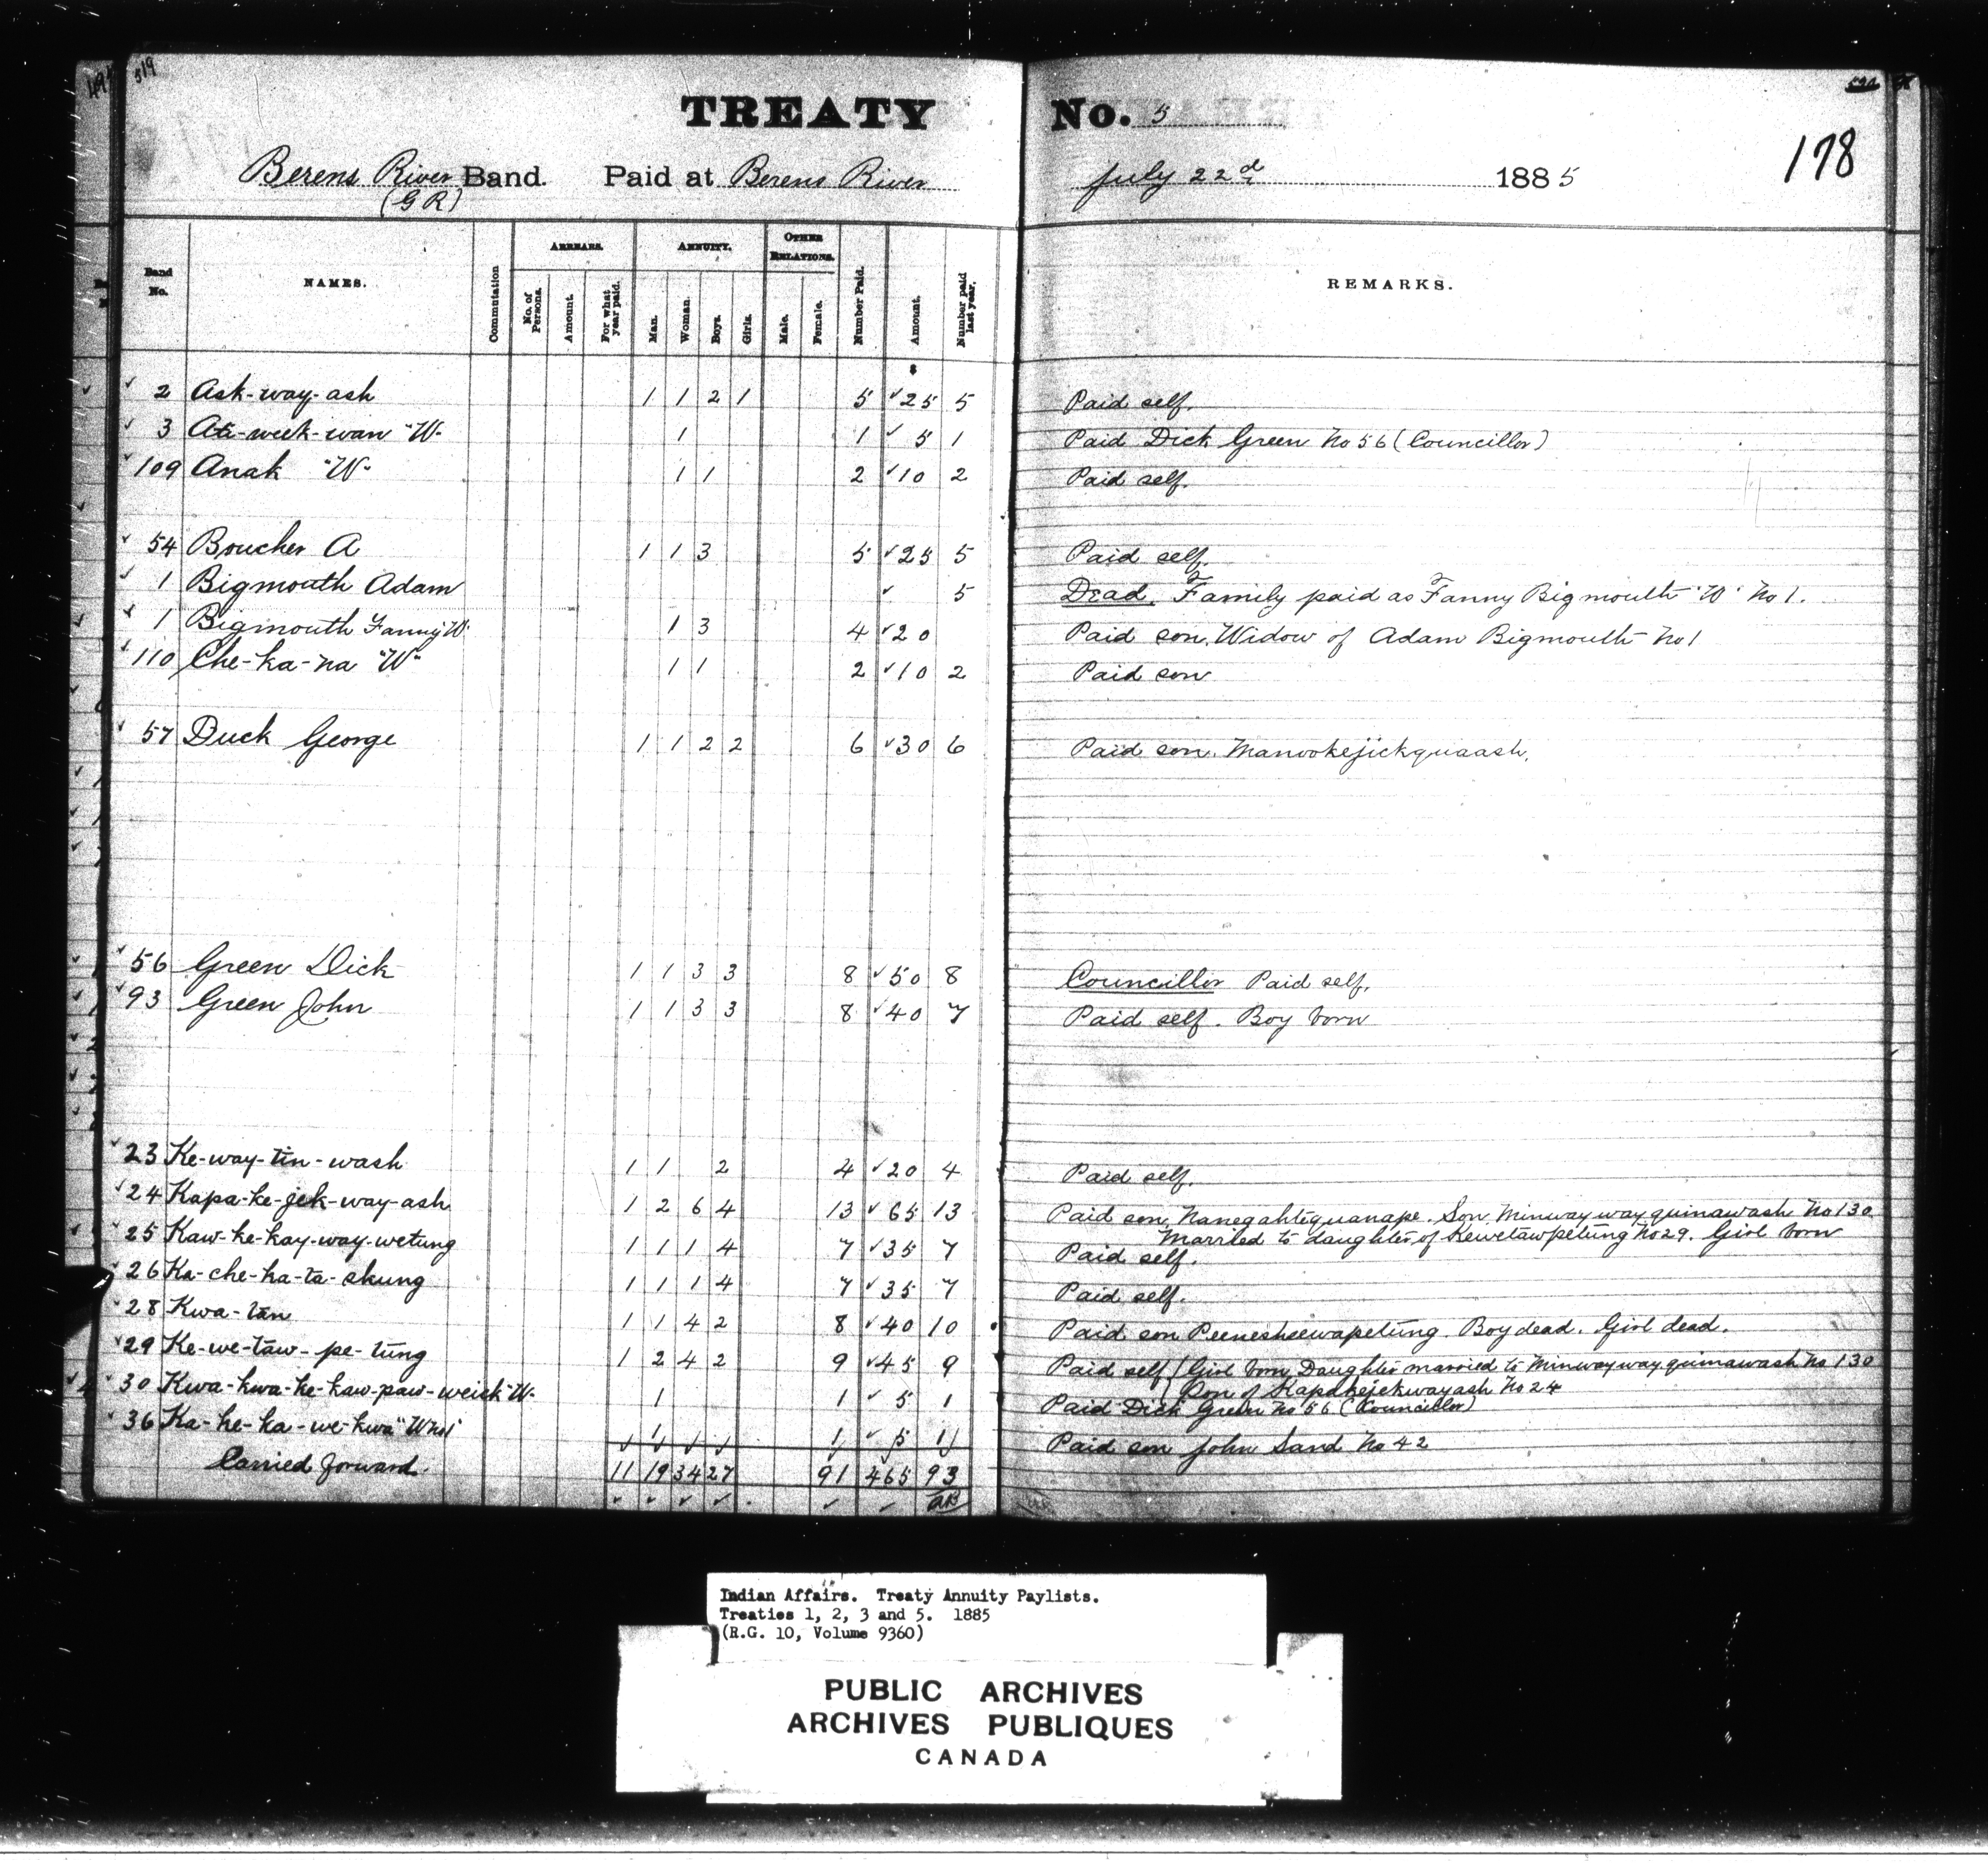 519
TREATY No. 5
178
Berens River Band. Paid at Berens River July 22d 1885
(G R)
Band No. NAMES. Commutation ARREARS. No. of Persons. Amount. For what year paid. ANNUITY. Man. Woman. Boys. Girls. OTHER RELATIONS. Male. Female. Number Paid. Amount. Number paid last year. REMARKS.
$
2 Ask-way-ash 1 1 2 1 5 25 5 Paid self.
3 Ata-week-wan "W" 1 1 5 1 Paid Dick Green No 56 (Councillor)
109 Anak "W" 1 1 2 10 2 Paid self.
54 Boucher A 1 1 3 5 25 5 Paid self.
1 Bigmouth Adam 5 Dead. Family paid as Fanny Bigmouth "W" No 1.
1 Bigmouth Fanny "W" 1 3 4 20 Paid son. Widow of Adam Bigmouth No 1
110 Che-ka-na "W" 1 1 2 10 2 Paid son
57 Duck George 1 1 2 2 6 30 6 Paid son. Manookejickquaash.
56 Green Dick 1 1 3 3 8 50 8 Councillor Paid self.
93 Green John 1 1 3 3 8 40 7 Paid self. Boy born
23 Ke-way-tin-wash 1 1 2 4 20 4 Paid self.
24 Kapa-ke-jek-way-ash 1 2 6 4 13 65 13 Paid son, Nanegahtequanape. Son Minwaywayquinawash No 130
Married to daughter of Kewetawpetung No 29. Girl born
25 Kaw-ke-kay-way-wetung 1 1 1 4 7 35 7 Paid self.
26 Ka-che-ka-ta-skung 1 1 1 4 7 35 7 Paid self.
28 Kwa-tan 1 1 4 2 8 40 10 Paid son Peenesheewapetung. Boy dead. Girl dead.
29 Ke-we-taw-pe-tung 1 2 4 2 9 45 9 Paid self (Girl born Daughter married to Minwaywayquinawash No 130
(Son of Kapakejekwayash No 24
30 Kwa-kwa-ke-kaw-paw-weisk "W" 1 1 5 1 Paid Dick Green No 56 (Councillor)
36 Ka-ke-ka-we-kwa "W" No 1 1 1 5 1 Paid son John Sand No 42
Carried forward. 11 19 34 27 91 465 93
Indian Affairs. Treaty Annuity Paylists.
Treaties 1, 2, 3 and 5. 1885
(R.G. 10, Volume 9360)
PUBLIC ARCHIVES
ARCHIVES PUBLIQUES
CANADA